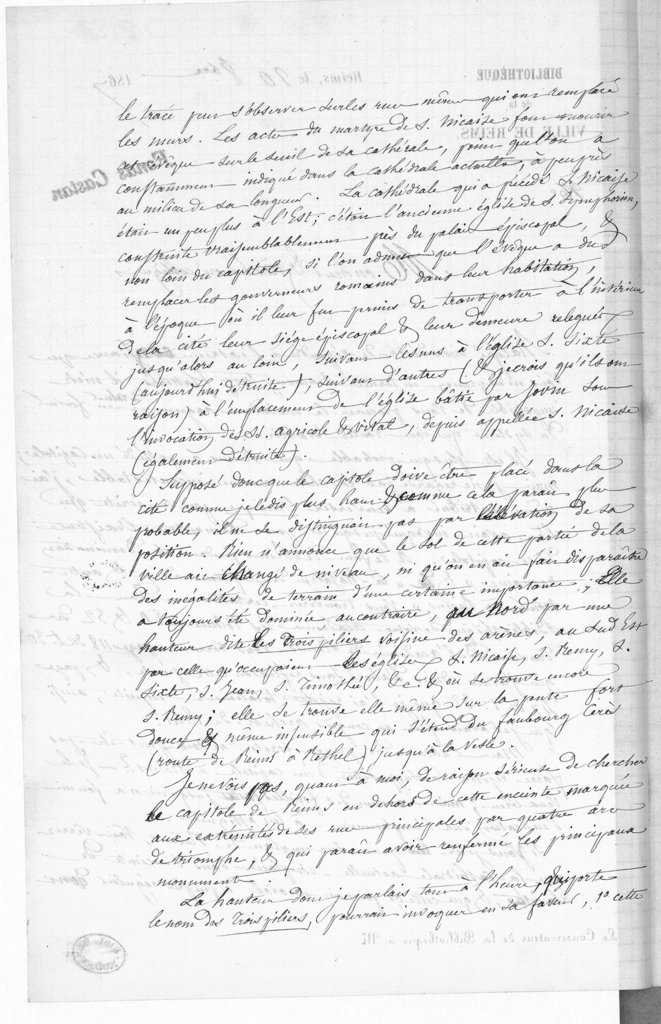 le tracé peut s'observer sur les rues mêmes qui ont remplacé
les murs. Les actes du martyre de S. Nicaise font mourir
cet évêque sur le seuil de sa cathédrale, point que l'on a
constamment indiqué dans la cathédrale actuelle, à peu près
au milieu de sa longueur. La cathédrale qui a précédé S. Nicaise
était un peu plus à l'Est; c'était l'ancienne église de S. Symphorien,
construite vraisemblablement près du palais épiscopal, &
non loin du capitole, si l'on admet que l'évêque a dû
remplacer les gouverneurs romains dans leur habitation,
à l'époque où il leur fut permis de transporter à l'intérieur
de la cité leur siége épiscopal & leur demeure relegués
jusqu'alors au loin, suivant les uns à l'église S. Sixte
(aujourd'hui détruite); suivant d'autres (& je crois qu'ils ont
raison) à l'emplacement de l'église bâtie par Jovin sous
l'invocation des SS. agricole & vital, depuis appellée S. Nicaise
(également détruite).
Supposé donc que le capitole doive être placé dans la
cité comme je le dis plus haut & comme cela paraît plus
probable, il ne se distinguait pas par l'élévation de sa
position. Rien n'annonce que le sol de cette partie de la
ville ait changé de niveau, ni qu'on en ait fait disparaître
des inegalités de terrain d'une certaine importance; Elle
a toujours été dominée au contraire, au Nord par une
hauteur dite les Trois piliers voisine des arènes, au Sud Est
par celle qu'occupaient les églises S. Nicaise, S. Remy, S.
Sixte, S. Jean, S. Timothée, &c. & où se trouve encore
S. Remy; elle se trouve elle même sur la pente fort
douce & même insensible qui s'étend du faubourg Cérès
(route de Reims à Rethel) jusqu'à la Vesle.
Je ne vois pas, quant à moi, de raison sérieuse de chercher
le capitole de Reims en dehors de cette enceinte marquée
aux extremités de ses rues principales par quatre arcs
de triomphe, & qui paraît avoir renfermé les principaux
monuments.
La hauteur dont je parlais tout à l'heure, qui porte
le nom des Trois piliers, pourrait invoquer en sa faveur, 1° cette
BIBLIOTHÈQUE
de la
VILLE DE REIMS
Reims, le
186
Fonds Castan
Le Conservateur de la Bibliothèque à M